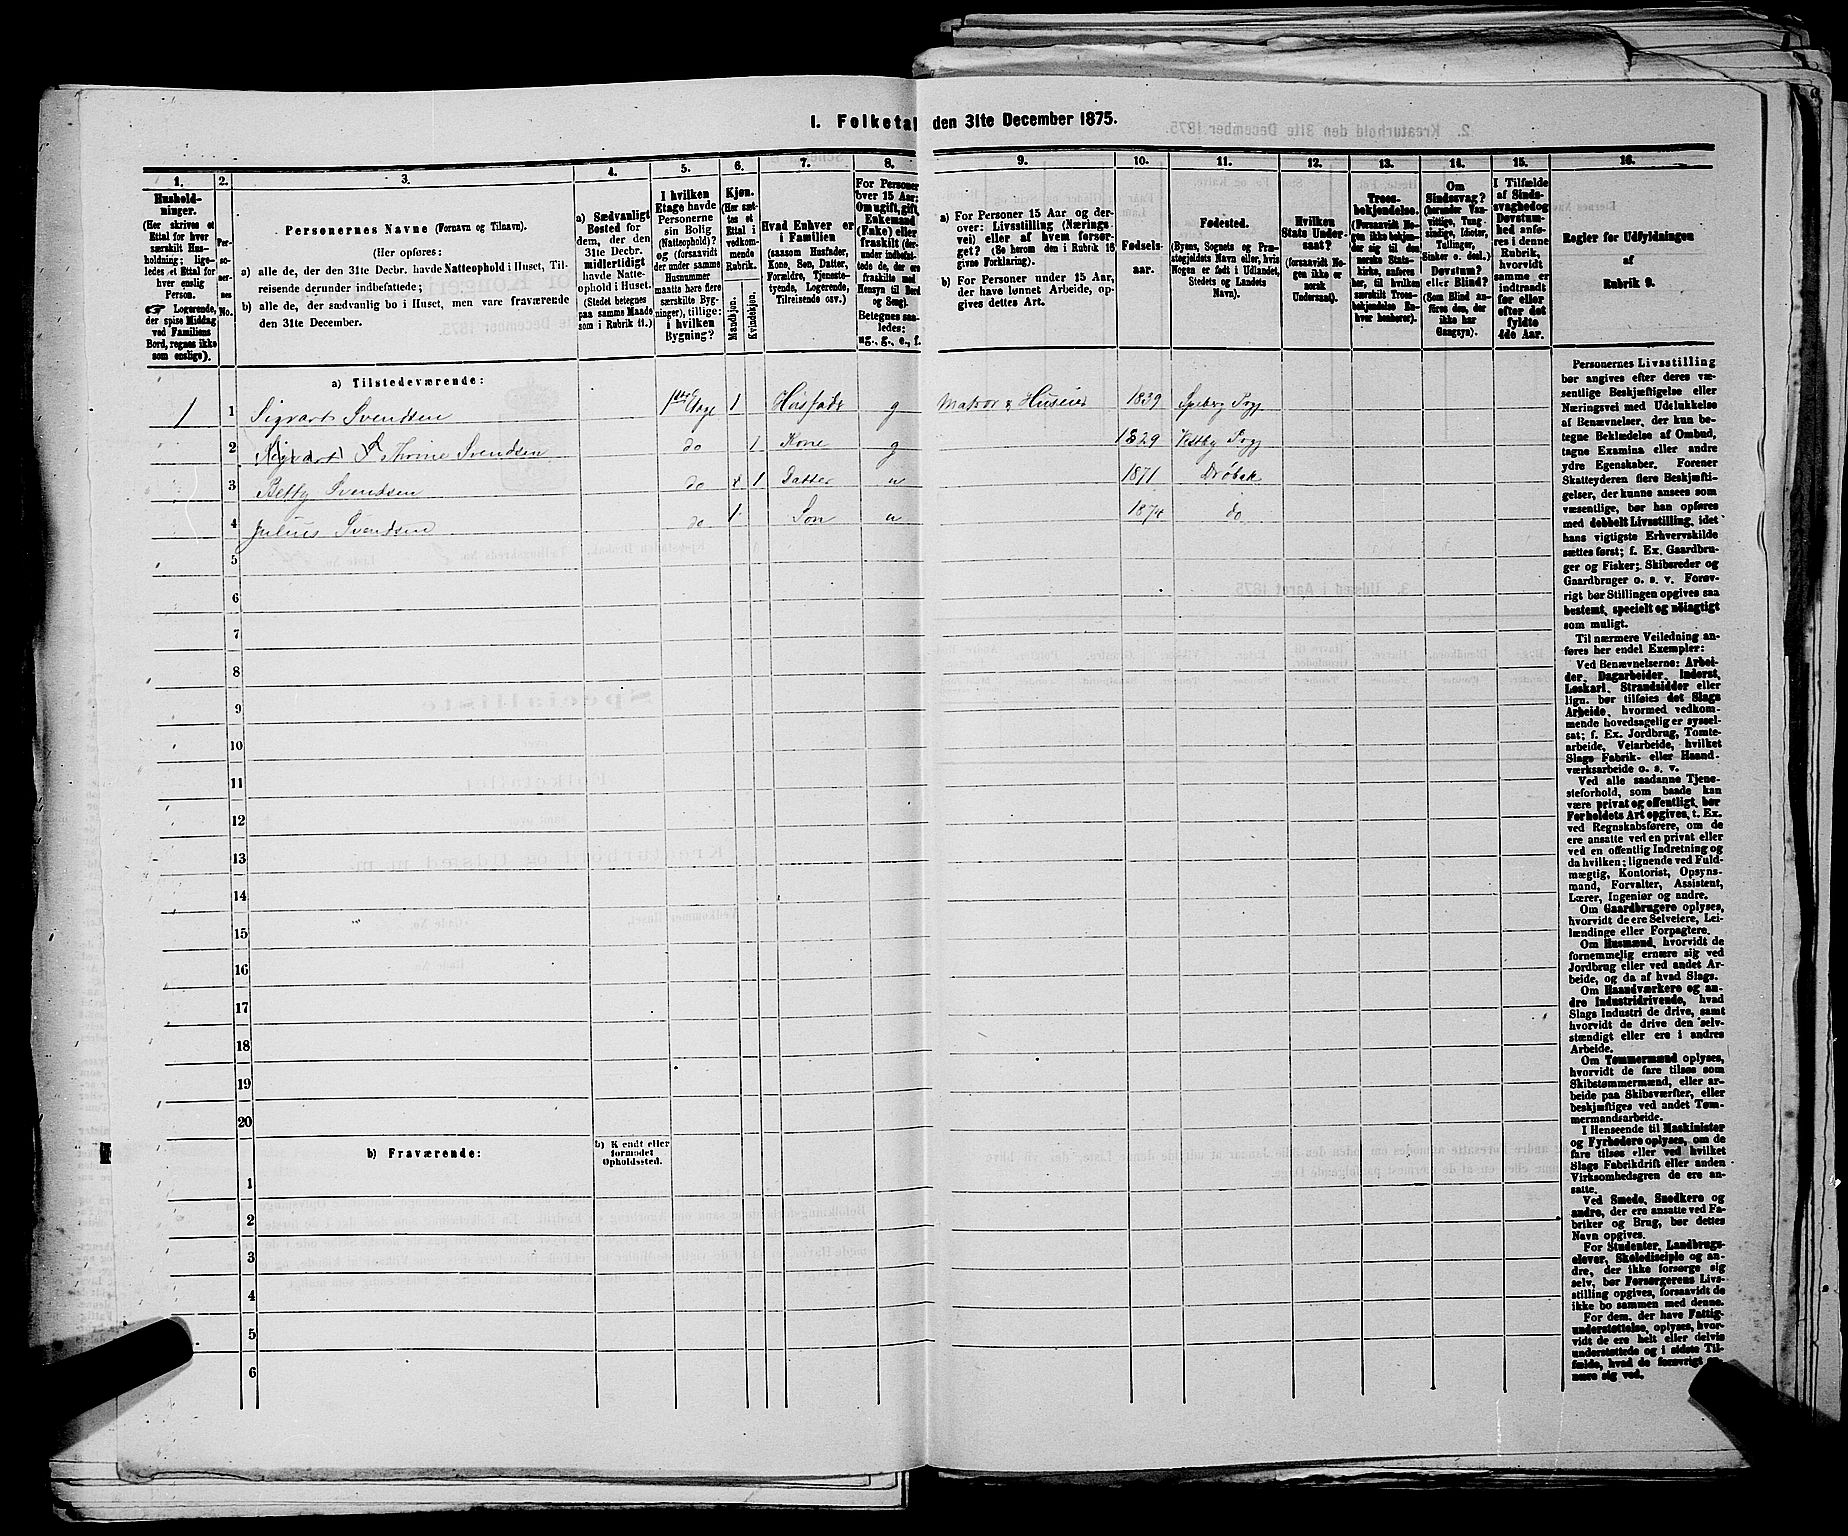 I. Folketal den 31te December 1875.
1.
2.
3.
4.
5.
6.
7.
8.
9.
10.
11.
12.
13.
14.
15.
16.
Husholdninger.
(Her skrives et
Ettal for hver
særskilt Husholdning;
ligeledes et Ettal for
hver enslig
Person.
☞ Logerende,
der spise Middag
ved Familiens
Bord, regnes ikke
som enslige).
Personernes
No.
Personernes Navne (Fornavn og Tilnavn).
(Her opføres:
a) alle de, der den 31te Decbr. havde Natteophold i Huset, Tilreisende derunder indbefattede;
b) alle de, der sædvanlig bo i Huset, men vare fraværende
den 31te December.
a) Sædvanligt
Bosted for
dem, der den
31te Decbr.
midlertidigt
havde Natteophold i Huset.
(Stedet betegnes
paa samme Maade
som i Rubrik 11.)
I hvilken
Etage havde
Personerne
sin Bolig
(Natteophold)?
og (forsaavidt
der under samme
Husnummer
maatte høre flere
særskilte Bygninger), tillige:
i hvilken
Bygning?
Kjøn.
(Her sættes et
Ettal i
vedkommende
Rubrik.
Mandkjøn.
Kvindekjøn.
Hvad Enhver er
i Familien
(saasom Husfader,
Kone, Søn, Datter,
Forældre, Tjenestetyende, Logerende,
Tilreisende osv.)
For Personer
over 15 Aar:
Om ugift, gift,
Enkemand
(Enke) eller
fraskilt
Betegnes saaledes:
ug., g., e., f.
a) For Personer 15 Aar og derover: Livsstilling (Næringsvei) eller af hvem forsørget? (Se herom den i Rubrik 16
givne Forklaring).
b) For Personer under 15 Aar,
der have lønnet Arbeide, opgives dettes Art.
Fødselsaar.
Fødested.
(Byens, Sognets og Præstegjeldets Navn eller, hvis
Nogen er født i Udlandet,
Stedets og Landets
Navn).
Hvilken
Stats Undersaat?
(forsaavidt Nogen ikke er
norsk
Undersaat).
Troesbekjendelse.
(Forsaavidt Nogen ikke bekjender
sig til den
norske Statskirke, anføres
her, til hvilket
særskilt Troesbekjendelse Enhver henhører).
Om
Sindssvag?
(herunder Vanvittige, Tungsindige, Idioter,
Tullinger,
Sinker o. desl.)
Døvstum?
eller Blind?
(Som Blind anføres den, der
ikke har
Gangsyn).
I Tilfælde
af Sindssvaghed og
Døvstumhed anføres i denne
Rubrik,
hvorvidt
samme er
indtraadt
før eller
efter det
fyldte
4de Aar.
Regler for Udfyldningen
af
Rubrik 9.
a) Tilstedeværende:
1 1 Sigvart Svendsen 1ste Etage 1 Husfader g Matros & Huseier 1839 Speberg Pgj
2 Thrine Svendsen do 1 Kone g 1829 Vestby Pgj
3 Betty Svendsen do 1 Datter u 1871 Drøbak
4 Julius Svendsen do 1 Søn u 1874 do
5
6
7
8
9
10
11
12
13
14
15
16
17
18
19
20
b) Fraværende:
b) Kjendt eller
formodet
Opholdssted.
1
2
3
4
5
6
Personernes Livsstilling
bør angives efter deres væsentlige Beskjæftigelse eller
Næringsvei med Udelukkelse
af Benævnelser, der kun betegne Beklædelse af Ombud,
tagne Examina eller andre
ydre Egenskaber. Forener
Skatteyderen flere Beskjæftigelser, der kunne ansees som
væsentlige, bør han opføres
med dobbelt Livsstilling, idet
hans vigtigste Erhvervskilde
sættes først; f. Ex. Gaardbruger og Fisker; Skibsreder og
Gaardbruger o. s. v. Forøvrigt bør Stillingen opgives saa
bestemt, specielt og nøiagtigt
som muligt.
Til nærmere Veiledning anføres her endel Exempler:
Ved Benævnelserne: Arbeider, Dagarbeider, Inderst,
Løskarl, Strandsidder eller
lign. bør tilføies det Slags
Arbeide, hvormed vedkommende hovedsagelig er sysselsat; f. Ex. Jordbrug, Tomtearbeide, Veiarbeide, hvilket
Slags Fabrik- eller Haandværksarbeide o. s. v.
Ved alle saadanne Tjenesteforhold, som baade kan
være privat og offentligt, bør
Forholdets Art opgives, t. Ex.
ved Regnskabsførere, om de
ere ansatte ved en privat eller
ved en offentlig Indretning og
da hvilken; lignende ved Fuldmægtig, Kontorist, Opsynsmand, Forvalter, Assistent,
Lærer, Ingeniør og andre.
Om Gaardbrugere oplyses,
hvorvidt de ere Selveiere, Leilændinge eller Forpagtere.
Om Husmænd, hvorvidt de
fornemmelig ernære sig ved
Jordbrug eller ved andet Arbeide, og da af hvad Slags.
Om Haandværkere og andre Industridrivende, hvad
Slags Industri de drive, samt
hvorvidt de drive den selvstændigt eller ere i andres
Arbeide.
Om Tømmermænd oplyses,
hvorvidt de fare tilsøs som
Skibstømmermænd, eller arbeide paa Skibsværfter, eller
beskjæftiges ved andet Tømmermandsarbeide.
I Henseende til Maskinister
og Fyrbødere oplyses, om de
fare tilsøs eller ved hvilket
Slags Fabrikdrift eller anden
Virksomhedsgren de ere ansatte.
Ved Smede, Snedkere og
andre, der ere ansatte ved Fabriker og Brug, bør dettes
Navn opgives.
For Studenter, Landbrugselever, Skoledisciple og andre, der ikke forsørge sig
selv, bør Forsørgerens Livsstilling opgives, forsaavidt de
ikke bo sammen med denne.
For dem, der have Fattigunderstøttelse, oplyses, hvorvidt de ere helt eller delvis
understøttede og i sidste Tilfælde, hvad de forøvrigt ernære sig ved.